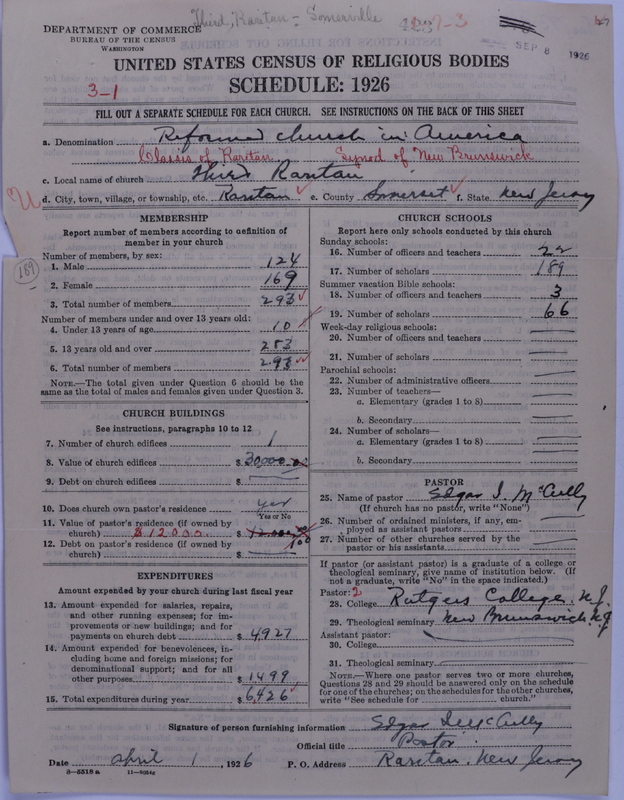 Third, Raritan - Somerville
DEPARTMENT OF COMMERCE
BUREAU OF THE CENSUS
WASHINGTON
SEP 8 1926
UNITED STATES CENSUS OF RELIGIOUS BODIES
3-1
SCHEDULE: 1926
FILL OUT A SEPARATE SCHEDULE FOR EACH CHURCH. SEE INSTRUCTIONS ON THE BACK OF THIS SHEET
a. Denomination Reformed church in America
Classis of Raritan Synod of New Brunswick
c. Local name of church Third Raritan
d. City, town, village, or township, etc. Raritan e. County Somerset f. State New Jersey
189
MEMBERSHIP
Report number of members according to definition of
member in your church
Number of members, by sex:
1. Male 124
2. Female 169
3. Total number of members 293
Number of members under and over 13 years old:
4. Under 13 years of age 10
5. 13 years old and over 283
6. Total number of members 293
NOTE.—The total given under Question 6 should be the
same as the total of males and females given under Question 3.
CHURCH BUILDINGS
See instructions, paragraphs 10 to 12
7. Number of church edifices 1
8. Value of church edifices $ 30,000.00
9. Debt on church edifices $
10. Does church own pastor's residence yes
Yes or No
11. Value of pastor's residence (if owned by
church) $12000 $
12. Debt on pastor's residence (if owned by
church) $
EXPENDITURES
Amount expended by your church during last fiscal year
13. Amount expended for salaries, repairs,
and other running expenses; for im-
provements or new buildings; and for
payments on church debt $ 4927
14. Amount expended for benevolences, in-
cluding home and foreign missions; for
denominational support; and for all
other purposes $ 1499
15. Total expenditures during year $ 6426
CHURCH SCHOOLS
Report here only schools conducted by this church
Sunday schools:
16. Number of officers and teachers 22
17. Number of scholars 189
Summer vacation Bible schools:
18. Number of officers and teachers 3
19. Number of scholars 66
Week-day religious schools:
20. Number of officers and teachers
21. Number of scholars
Parochial schools:
22. Number of administrative officers
23. Number of teachers—
a. Elementary (grades 1 to 8)
b. Secondary
24. Number of scholars—
a. Elementary (grades 1 to 8)
b. Secondary
PASTOR
25. Name of pastor Edgar I. McCully
(If church has no pastor, write "None")
26. Number of ordained ministers, if any, em-
ployed as assistant pastors
27. Number of other churches served by the
pastor or his assistants
If pastor (or assistant pastor) is a graduate of a college or
theological seminary, give name of institution below. (If
not a graduate, write "No" in the space indicated.)
Pastor: 2
28. College Rutgers College, N.J.
29. Theological seminary New Brunswick N.J.
Assistant pastor:
30. College
31. Theological seminary
NOTE.—Where one pastor serves two or more churches,
Questions 28 and 29 should be answered only on the schedule
for one of the churches; on the schedules for the other churches,
write "See schedule for church."
Signature of person furnishing information Edgar I McCully
Official title Pastor
Date April 1, 1926 P. O. Address Raritan, New Jersey
8—5518 a